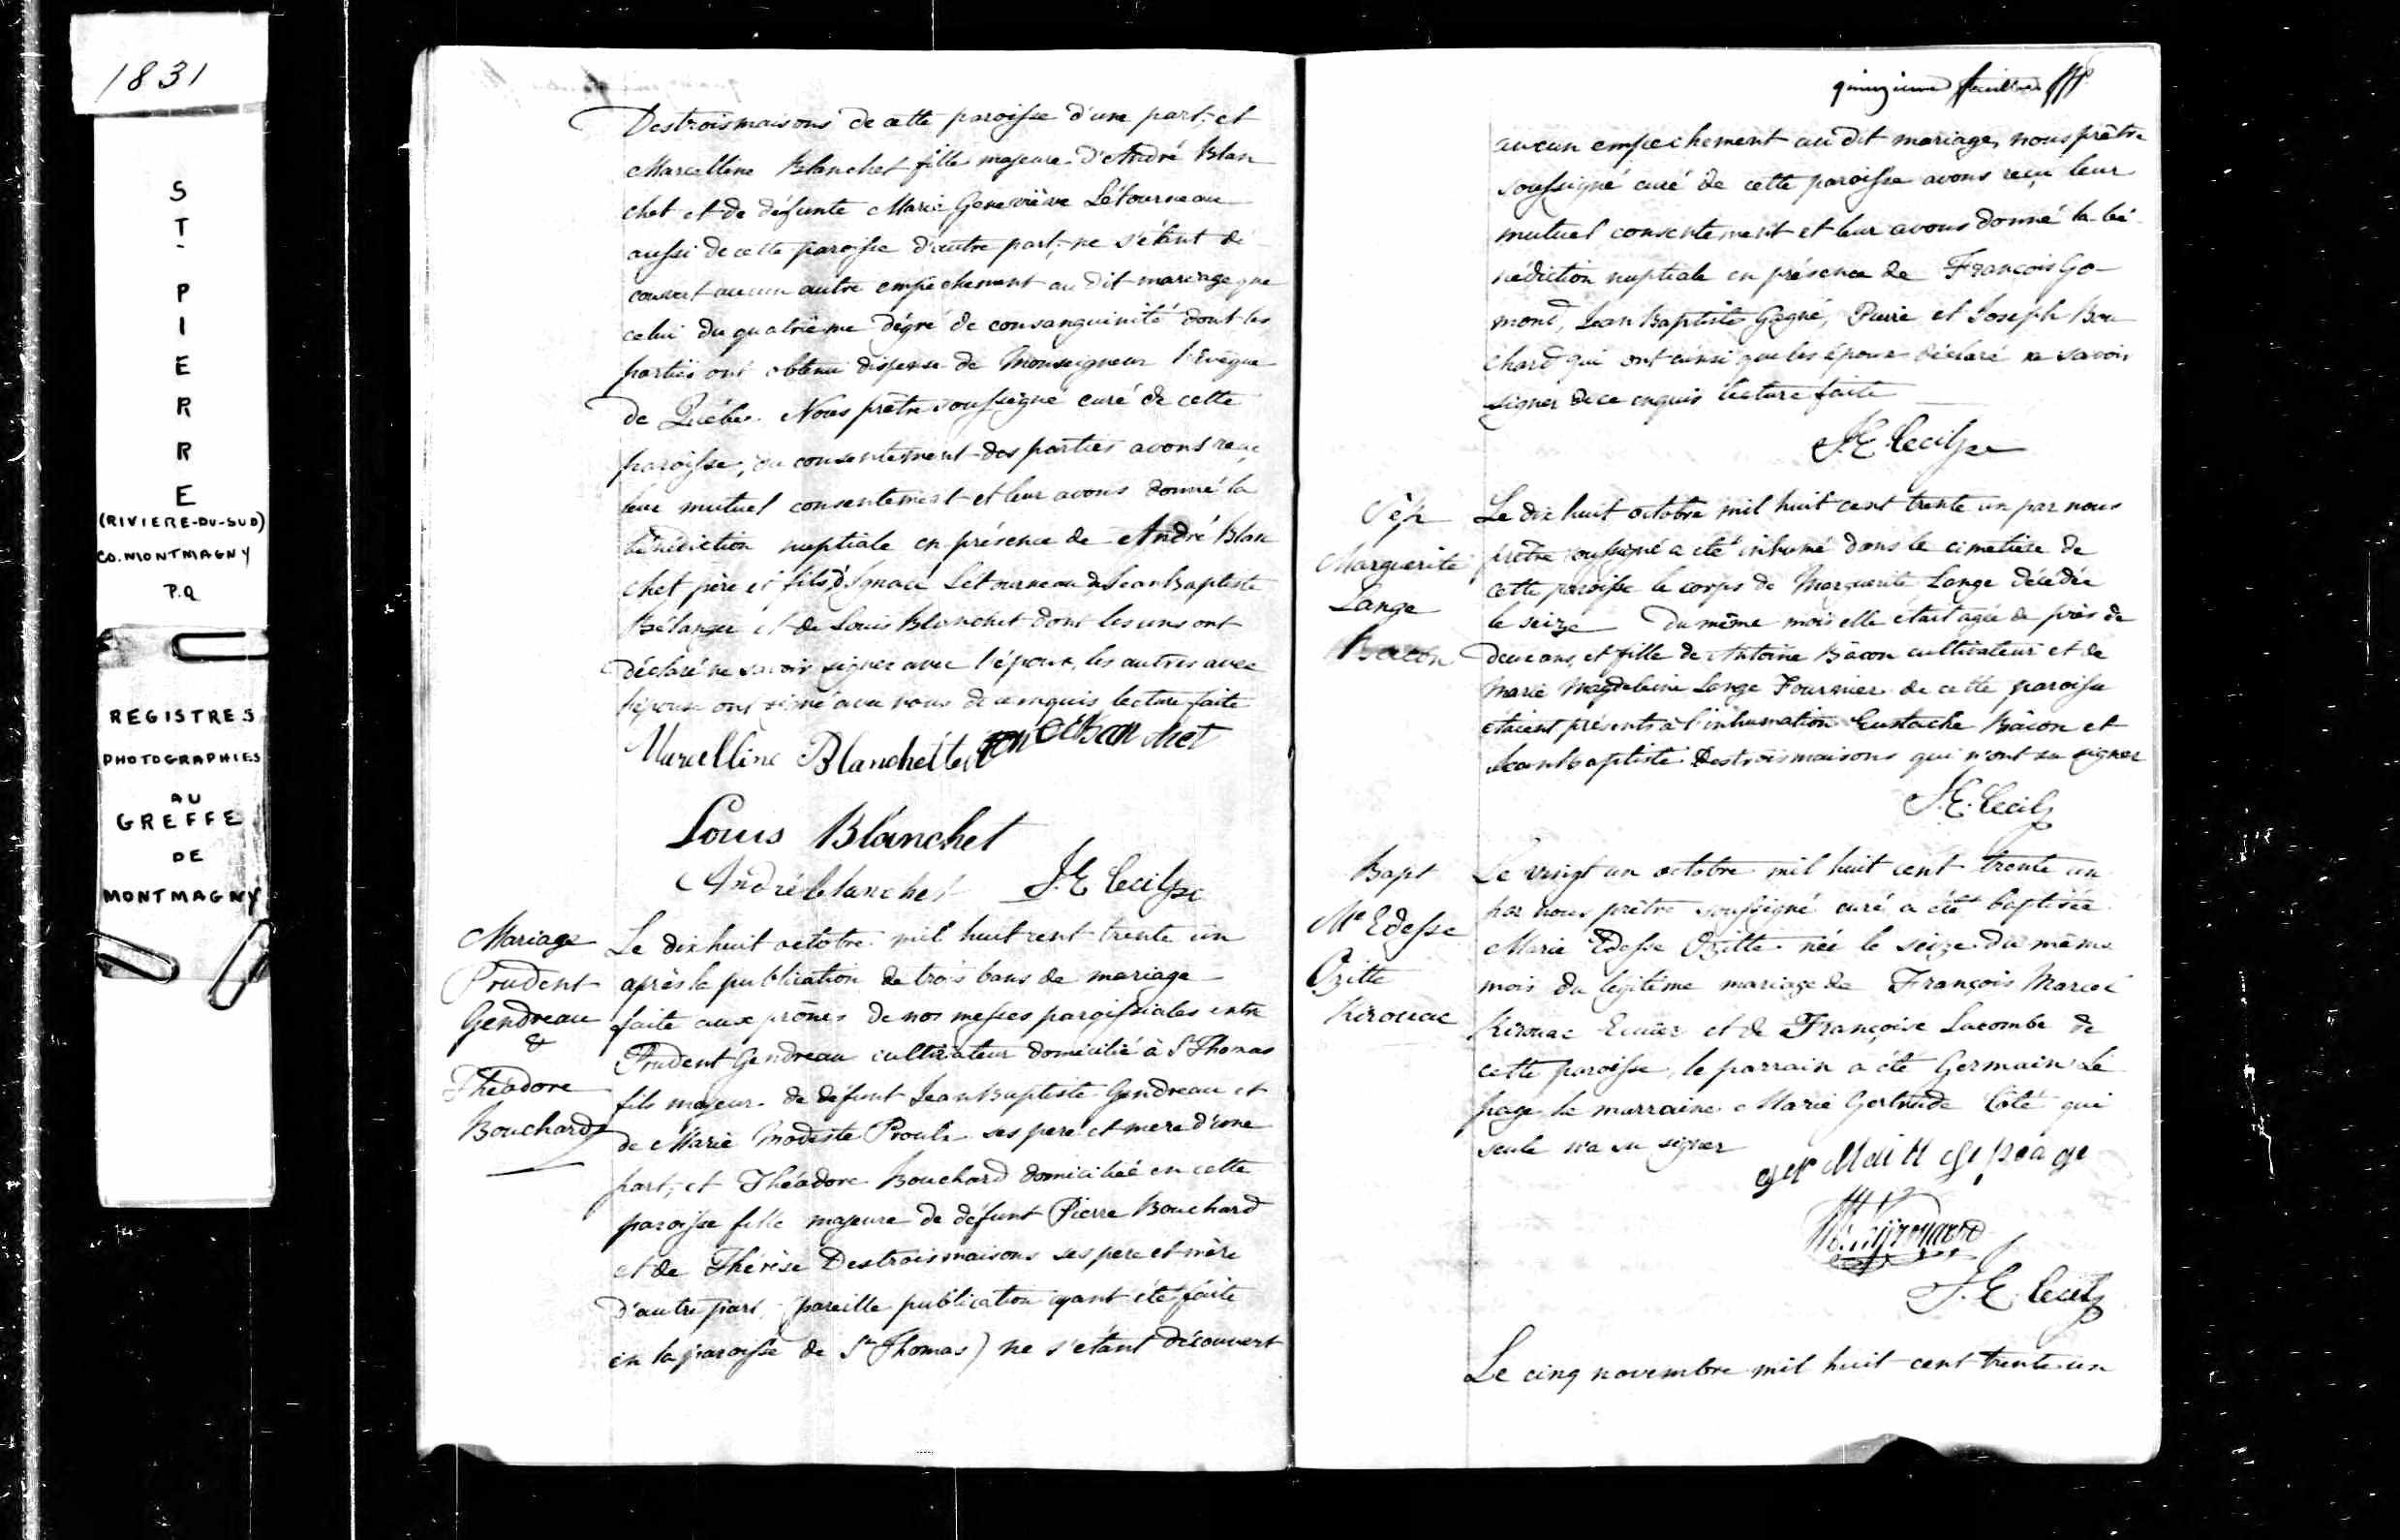 1831
ST
PIERRE
(RIVIERE-DU-SUD)
CO. MONTMAGNY
P.Q
REGISTRES
PHOTOGRAPHIES
AU
GREFFE
DE
MONTMAGNY
Destroismaisons de cette paroisse d'une part; et
Marcelline Blanchet fille majeure d'André Blan
chet et de défunte Marie Geneviève Létourneau
aussi de cette paroisse d'autre part; ne s'étant dé
couvert aucun autre empêchement au dit mariage que
celui du quatrième dégré de consanguinité dont les
parties ont obtenu dispense de Monseigneur l'Evêque
de Québec. Nous prêtre soussigné curé de cette
paroisse, du consentement des parties avons reçu
leur mutuel consentement et leur avons donné la
bénédiction nuptiale en présence de André Blan
chet père et fils, d'Ignace Létourneau de Jean Baptiste
Bélanger et de Louis Blanchet dont les uns ont
déclaré ne savoir signer avec l'époux, les autres avec
l'épouse ont signé avec nous de ce enquis lecture faite
Marcelline Blanchette
Louis Blanchet
André blanchet J. E. Cecil Ptre
Mariage
Prudent
Gendreau
&
Théadore
Bouchard
Le dix huit octobre mil huit cent trente un
après la publication de trois bans de mariage
faite aux prônes de nos messes paroissiales entre
Prudent Gendreau cultivateur domicilié à St Thomas
fils majeur de défunt Jean Baptiste Gendreau et
de Marie Modeste Proulx ses pere et mere d'une
part; et Théadore Bouchard domiciliée en cette
paroisse fille majeure de défunt Pierre Bouchard
et de Thérèse Destroismaisons ses pere et mère
d'autre part, (pareille publication ayant été faite
en la paroisse de St Thomas) ne s'étant découvert
quinzieme feuillet
aucun empechement au dit mariage, nous prêtre
soussigné curé de cette paroisse avons reçu leur
mutuel consentement et leur avons donné la bé
nédiction nuptiale en présence de François Ga-
mond, Jean Baptiste Gagné, Pierre et Joseph Bou
chard qui ont ainsi que les époux déclaré ne savoir
signer de ce enquis lecture faite
J. E. Cecil Ptre
Sép
Marguerite
Lange
Bacon
Le dix huit octobre mil huit cent trente un par nous
prêtre soussigné a été inhumé dans le cimetière de
cette paroisse le corps de Marguerite Lange décédée
le seize du même mois elle était agée de près de
deux ans, et fille de Antoine Bâcon cultivateur et de
Marie Magdeleine Lange Fournier de cette paroisse
étaient présents à l'inhumation Eustache Bâcon et
Jean Baptiste Destroismaisons qui n'ont su signer
J. E. Cecil Ptre
Bapt
Me Edesse
Ozitte
Kirouac
Le vingt un octobre mil huit cent trente un
par nous prêtre soussigné curé a été baptisée
Marie Edesse Ozitte née le seize du même
mois du légitime mariage de François Marcel
Kirouac Ecuier et de Françoise Lacombe de
cette paroisse, le parrain a été Germain Le
page la marraine Marie Gertrude Côté qui
seule n'a su signer
J. E. Cecil Ptre
Le cinq novembre mil huit cent trente un